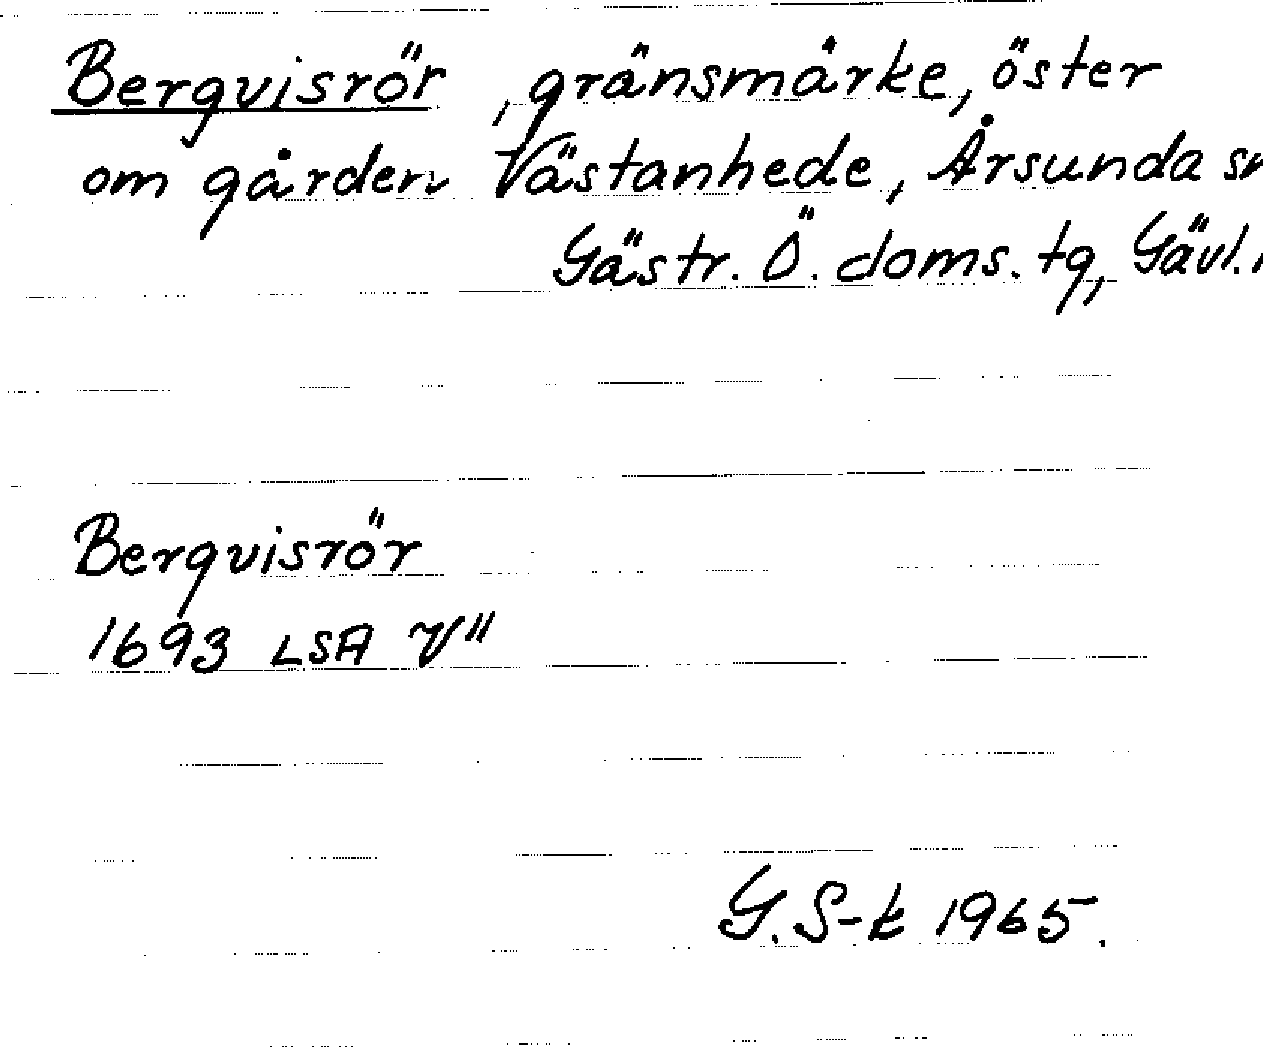 Bergvisrör, gränsmärke, öster
om gården Västanhede, Årsunda sn
Gästr. Ö. doms. tg, Gävl.
Bergvisrör
1693 LSA V"
G. S-k 1965.